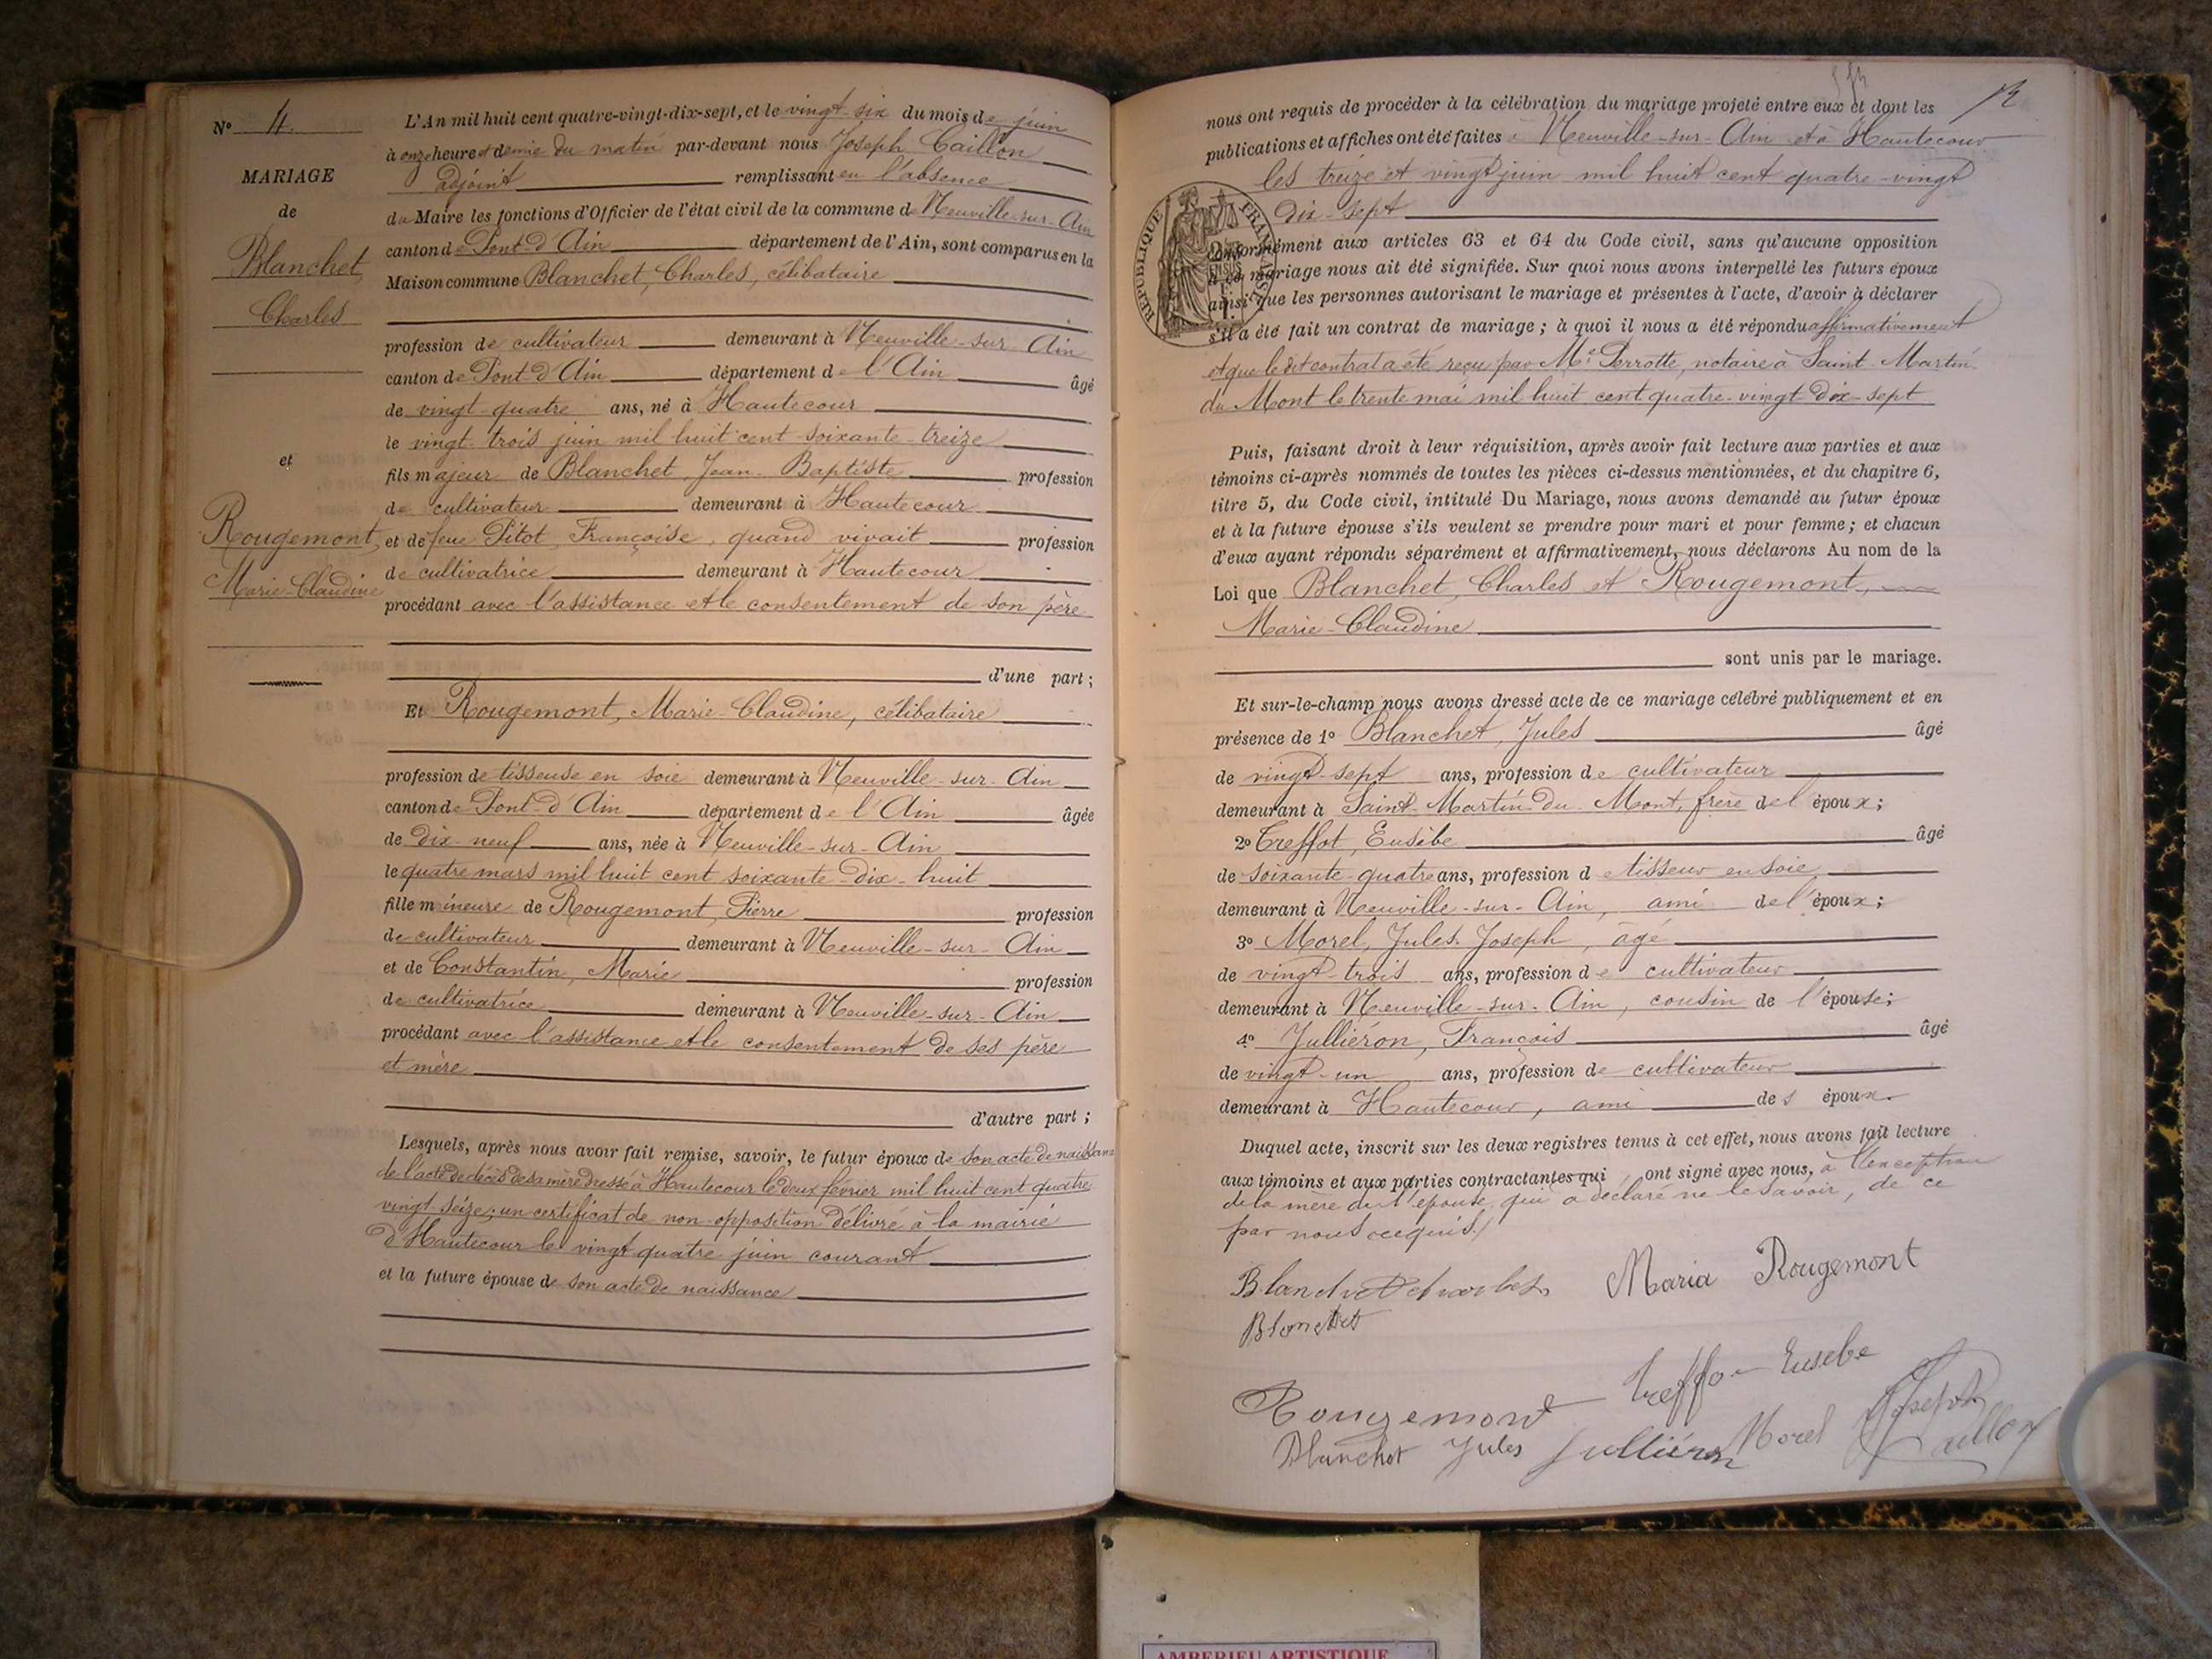 N° 4.
MARIAGE
de
Blanchet,
Charles
et
Rougemont,
Marie-Claudine
L'An mil huit cent quatre-vingt-dix-sept, et le vingt-six du mois de juin
à onze heure et demie du matin par-devant nous Joseph Caillon
adjoint remplissant en l'absence
du Maire les fonctions d'Officier de l'état civil de la commune de Neuville-sur-Ain
canton de Pont-d'Ain département de l'Ain, sont comparus en la
Maison commune Blanchet, Charles, célibataire
profession de cultivateur demeurant à Neuville-sur-Ain
canton de Pont-d'Ain département de l'Ain âgé
de vingt-quatre ans, né à Hautecour
le vingt-trois juin mil huit cent soixante-treize
fils majeur de Blanchet Jean-Baptiste profession
de cultivateur demeurant à Hautecour
et de feue Pitot, Françoise, quand vivait profession
de cultivatrice demeurant à Hautecour
procédant avec l'assistance et le consentement de son père
d'une part;
Et Rougemont, Marie-Claudine, célibataire
profession de tisseuse en soie demeurant à Neuville-sur-Ain
canton de Pont-d'Ain département de l'Ain âgée
de dix-neuf ans, née à Neuville-sur-Ain
le quatre mars mil huit cent soixante-dix-huit
fille mineure de Rougemont, Pierre profession
de cultivateur demeurant à Neuville-sur-Ain
et de Constantin, Marie profession
de cultivatrice demeurant à Neuville-sur-Ain
procédant avec l'assistance et le consentement de ses père
et mère
d'autre part;
Lesquels, après nous avoir fait remise, savoir, le futur époux de son acte de naissance
de l'acte de décès de sa mère dressé à Hautecour le deux février mil huit cent quatre
vingt seize; un certificat de non-opposition délivré à la mairie
d'Hautecour le vingt quatre juin courant
et la future épouse de son acte de naissance
12
nous ont requis de procéder à la célébration du mariage projeté entre eux et dont les
publications et affiches ont été faites à Neuville-sur-Ain et à Hautecour
les treize et vingt juin mil huit cent quatre-vingt
dix-sept
RÉPUBLIQUE FRANÇAISE
conformément aux articles 63 et 64 du Code civil, sans qu'aucune opposition
à ce mariage nous ait été signifiée. Sur quoi nous avons interpellé les futurs époux
ainsi que les personnes autorisant le mariage et présentes à l'acte, d'avoir à déclarer
s'il a été fait un contrat de mariage; à quoi il nous a été répondu affirmativement
et que ledit contrat a été reçu par Me Perrotte, notaire à Saint-Martin
du Mont le trente mai mil huit cent quatre-vingt-dix-sept
Puis, faisant droit à leur réquisition, après avoir fait lecture aux parties et aux
témoins ci-après nommés de toutes les pièces ci-dessus mentionnées, et du chapitre 6,
titre 5, du Code civil, intitulé Du Mariage, nous avons demandé au futur époux
et à la future épouse s'ils veulent se prendre pour mari et pour femme; et chacun
d'eux ayant répondu séparément et affirmativement, nous déclarons Au nom de la
Loi que Blanchet, Charles et Rougemont,
Marie-Claudine
sont unis par le mariage.
Et sur-le-champ nous avons dressé acte de ce mariage célébré publiquement et en
présence de 1° Blanchet, Jules âgé
de vingt-sept ans, profession de cultivateur
demeurant à Saint-Martin-du-Mont, frère de l'époux;
2° Treffot, Eusèbe âgé
de soixante-quatre ans, profession de tisseur en soie,
demeurant à Neuville-sur-Ain, ami de l'époux;
3° Morel, Jules Joseph, âgé
de vingt-trois ans, profession de cultivateur
demeurant à Neuville-sur-Ain, cousin de l'épouse;
4° Julliéron, François âgé
de vingt-un ans, profession de cultivateur
demeurant à Hautecour, ami des époux.
Duquel acte, inscrit sur les deux registres tenus à cet effet, nous avons fait lecture
aux témoins et aux parties contractantes qui ont signé avec nous, à l'exception
de la mère de l'épouse qui a déclaré ne le savoir, de ce
par nous requis.
Blanchet charles Maria Rougemont
Blanchet
Rougemont Treffot Eusebe
Blanchet Jules Julliéron Morel Joseph
Caillon
AMBERIEU ARTISTIQUE